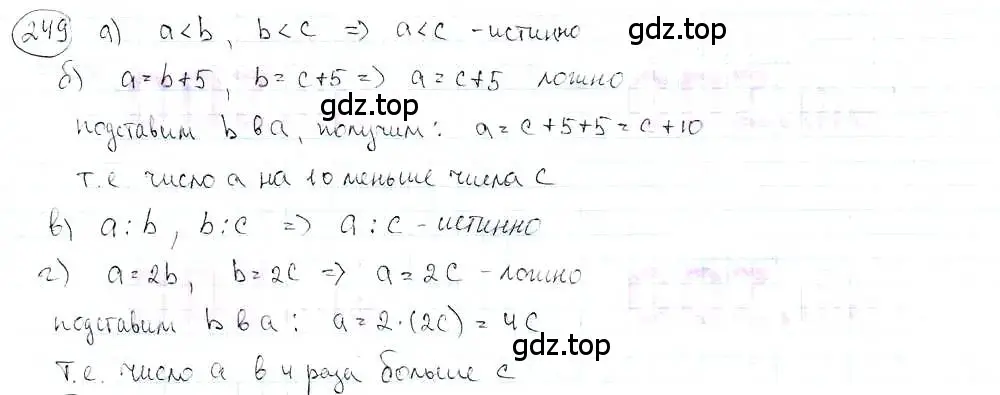 249 а) a < b, b < c => a < c - истинно gdz.top
б) a = b+5, b = c+5 => a = c+5 ложно
gdz.top
подставим b в a, получим: a = c+5+5 = c+10
т.е. число a на 10 меньше числа c
в) a : b, b : c => a : c - истинно
г) a = 2b, b = 2c => a = 2c - ложно
gdz.top
подставим b в a: a = 2·(2c) = 4c
gdz.top
т.е. число a в 4 раза больше c